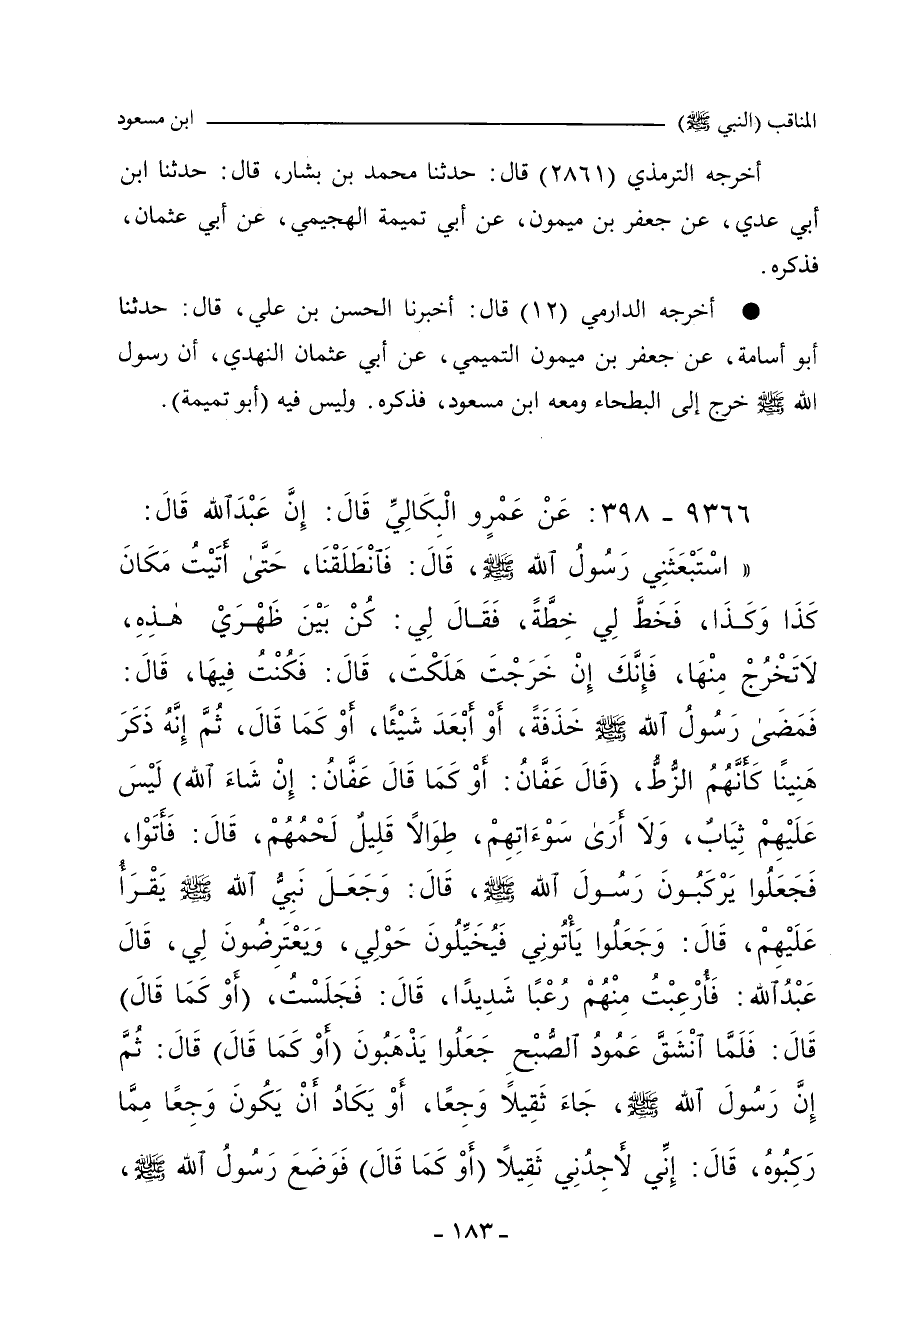 المناقب (النبي ﷺ) ــــــــ ابن مسعود
أخرجه الترمذي (٢٨٦١) قال: حدثنا محمد بن بشار، قال: حدثنا ابن
أبي عدي، عن جعفر بن ميمون، عن أبي تميمة الهجيمي، عن أبي عثمان،
فذكره.
● أخرجه الدارمي (١٢) قال: أخبرنا الحسن بن علي، قال: حدثنا
أبو أسامة، عن جعفر بن ميمون التميمي، عن أبي عثمان النهدي، أن رسول
الله ﷺ خرج إلى البطحاء ومعه ابن مسعود، فذكره. وليس فيه (أبو تميمة).
٩٣٦٦ ـ ٣٩٨: عَنْ عَمْرٍو الْبِكَالِيِّ قَالَ: إِنَّ عَبْدَٱلله قَالَ:
« اسْتَبْعَثَنِي رَسُولُ ٱلله ﷺ، قَالَ: فَٱنْطَلَقْنَا، حَتَّىٰ أَتَيْتُ مَكَانَ
كَذَا وَكَذَا، فَخَطَّ لِي خِطَّةً، فَقَالَ لِي: كُنْ بَيْنَ ظَهْرَيْ هٰذِهِ،
لاَتَخْرُجْ مِنْهَا، فَإِنَّكَ إِنْ خَرَجْتَ هَلَكْتَ، قَالَ: فَكُنْتُ فِيهَا، قَالَ:
فَمَضَىٰ رَسُولُ ٱلله ﷺ خَذَفَةً، أَوْ أَبْعَدَ شَيْئًا، أَوْ كَمَا قَالَ، ثُمَّ إِنَّهُ ذَكَرَ
هَنِينًا كَأَنَّهُمُ الزُّطُّ، (قَالَ عَفَّانُ: أَوْ كَمَا قَالَ عَفَّانُ: إِنْ شَاءَ ٱلله) لَيْسَ
عَلَيْهِمْ ثِيَابٌ، وَلَا أَرَىٰ سَوْءَاتِهِمْ، طِوَالًا قَلِيلٌ لَحْمُهُمْ، قَالَ: فَأَتَوْا،
فَجَعَلُوا يَرْكَبُونَ رَسُولَ ٱلله ﷺ، قَالَ: وَجَعَلَ نَبِيُّ ٱلله ﷺ يَقْرَأُ
عَلَيْهِمْ، قَالَ: وَجَعَلُوا يَأْتُونِي فَيُخَيِّلُونَ حَوْلِي، وَيَعْتَرِضُونَ لِي، قَالَ
عَبْدُٱلله: فَأُرْعِبْتُ مِنْهُمْ رُعْبًا شَدِيدًا، قَالَ: فَجَلَسْتُ، (أَوْ كَمَا قَالَ)
قَالَ: فَلَمَّا ٱنْشَقَّ عَمُودُ ٱلصُّبْحِ جَعَلُوا يَذْهَبُونَ (أَوْ كَمَا قَالَ) قَالَ: ثُمَّ
إِنَّ رَسُولَ ٱلله ﷺ، جَاءَ ثَقِيلاً وَجِعًا، أَوْ يَكَادُ أَنْ يَكُونَ وَجِعًا مِمَّا
رَكِبُوهُ، قَالَ: إِنِّي لأَجِدُنِي ثَقِيلاً (أَوْ كَمَا قَالَ) فَوَضَعَ رَسُولُ ٱلله ﷺ،
- ١٨٣ -